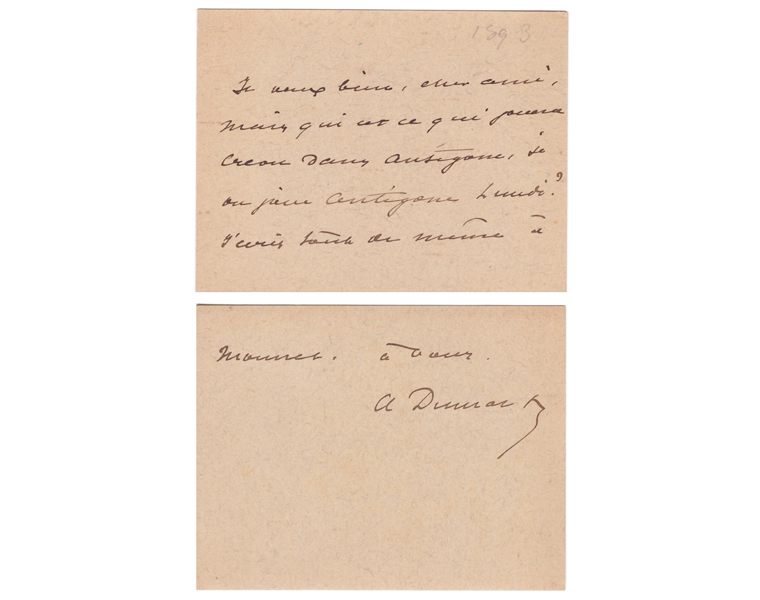 1893
Je veux bien, cher ami,
mais qui est ce qui jouera
Creon dans Antigone, si
on joue Antigone Lundi?
J'écris tout de même à
Mounet. à vous.
A Dumas